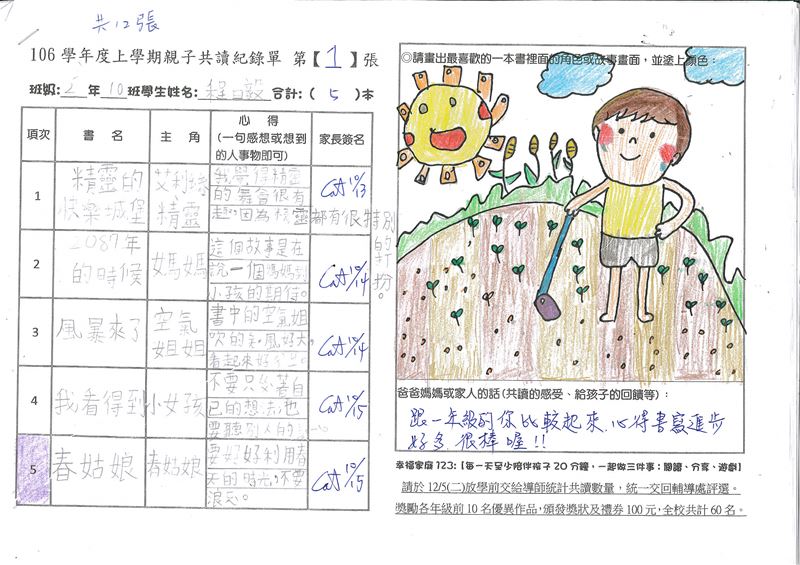 共12張
106學年度上學期親子共讀紀錄單 第【1】張
班級:2年10班學生姓名: 合計:(5)本
項次 書名 主角 心得(一句感想或想到的人事物即可) 家長簽名
1 精靈的快樂城堡 精靈 我覺得精靈的舞會很有趣,因為精靈都有很特別的打扮。 Cat 10/13
2 2087年的時候 媽媽 這個故事是在說一個媽媽對小孩的期待。 Cat 10/14
3 風暴來了 空氣姐姐 書中的空氣姐吹的 風好大,看起來好 Cat 10/14
4 我看得到 小女孩 不要只公著自己的想法,也要聽別人的 Cat 10/15
5 春姑娘 春姑娘 要好好利用春天的時光,不要浪 Cat 10/15
◎請畫出最喜歡的一本書裡面的角色或故事畫面,並塗上顏色:
爸爸媽媽或家人的話(共讀的感受、給孩子的回饋等):
跟一年級的你比較起來,心得書寫進步
好多,很棒喔!!
幸福家庭123:【每一天至少陪伴孩子20分鐘,一起做三件事:閱讀、分享、遊戲】
請於12/5(二)放學前交給導師統計共讀數量,統一交回輔導處評選。
獎勵各年級前10名優異作品,頒發獎狀及禮券100元,全校共計60名。